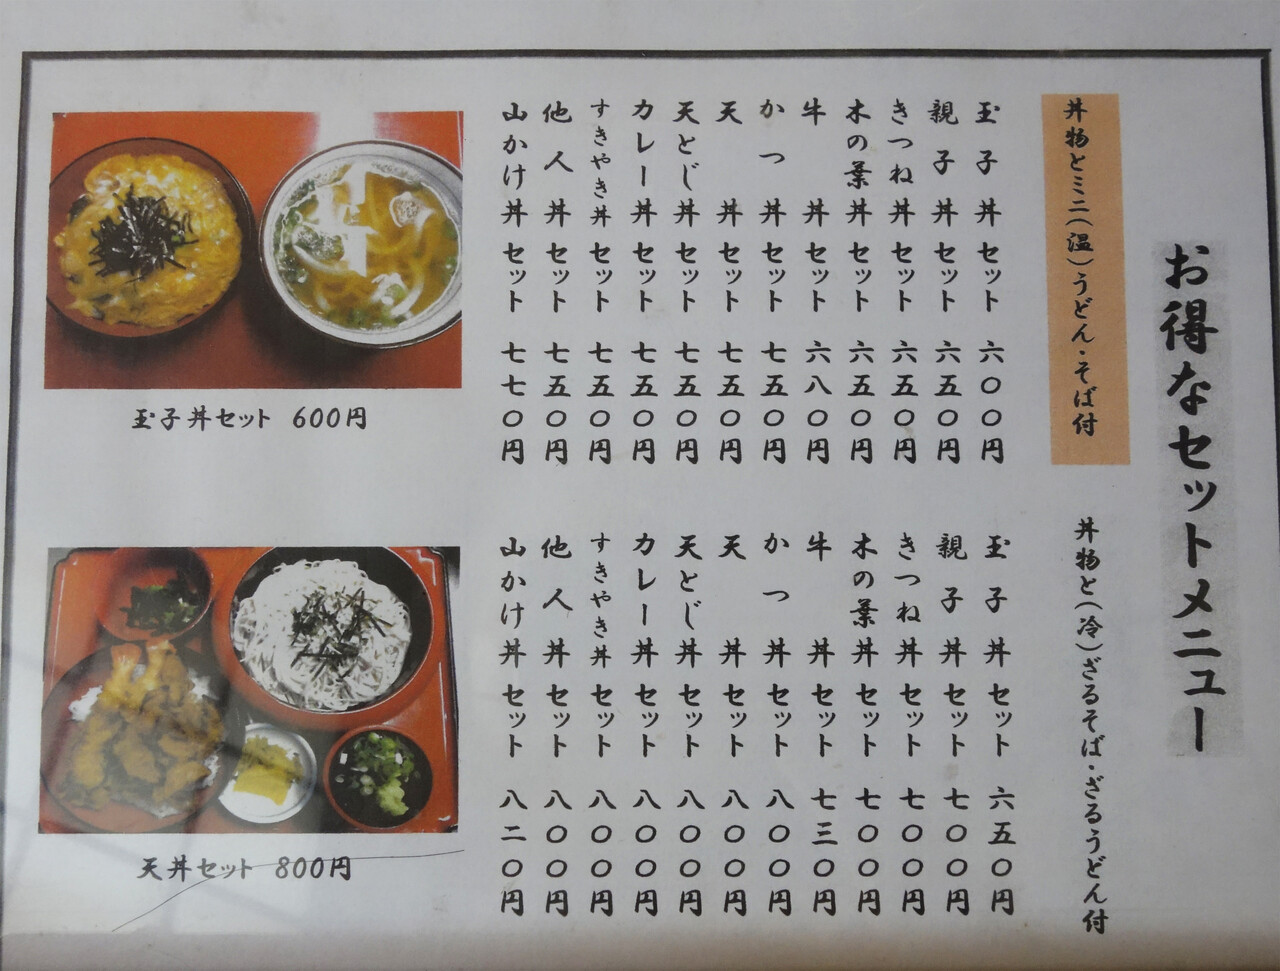 お得なセットメニュー
丼物とミニ（温）うどん・そば付
玉子丼セット 六〇〇円
親子丼セット 六五〇円
きつね丼セット 六五〇円
木の葉丼セット 六五〇円
牛丼セット 六八〇円
かつ丼セット 七五〇円
天丼セット 七五〇円
天とじ丼セット 七五〇円
カレー丼セット 七五〇円
すきやき丼セット 七五〇円
他人丼セット 七五〇円
山かけ丼セット 七七〇円
丼物と（冷）ざるそば・ざるうどん付
玉子丼セット 六五〇円
親子丼セット 七〇〇円
きつね丼セット 七〇〇円
木の葉丼セット 七〇〇円
牛丼セット 七三〇円
かつ丼セット 八〇〇円
天丼セット 八〇〇円
天とじ丼セット 八〇〇円
カレー丼セット 八〇〇円
すきやき丼セット 八〇〇円
他人丼セット 八〇〇円
山かけ丼セット 八二〇円
玉子丼セット 600円
天丼セット 800円